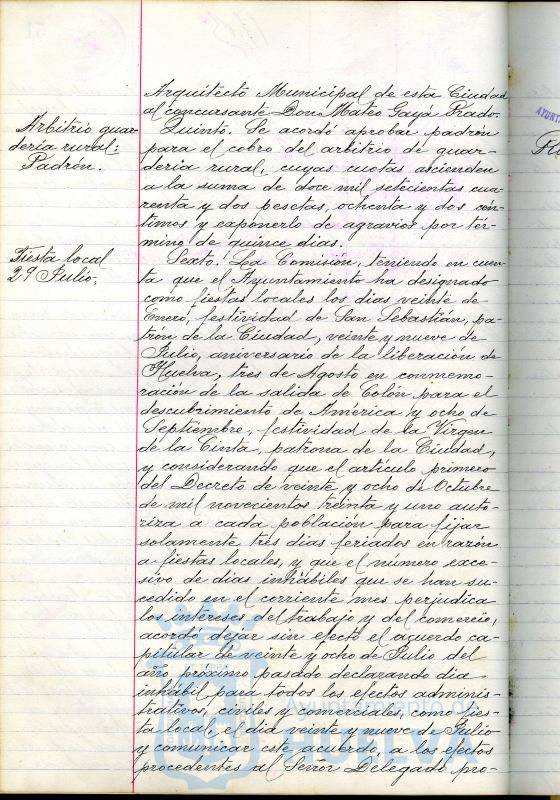 Arquitecto Municipal de esta Ciudad
al concursante Don Mateo Gayá Prado.
Arbitrio guar
deria rural:
Padrón.
Quinto. Se acordó aprobar padrón
para el cobro del arbitrio de guar-
deria rural, cuyas cuotas ascienden
a la suma de doce mil setecientas cua
renta y dos pesetas, ochenta y dos cén-
timos y exponerlo de agravios por tér-
mino de quince dias.
Fiesta local
29 Julio.
Sexto. La Comisión, teniendo en cuen-
ta que el Ayuntamiento ha designado
como fiestas locales los dias veinte de
Enero, festividad de San Sebastián, pa-
trón de la Ciudad, veinte y nueve de
Julio, aniversario de la liberación de
Huelva, tres de Agosto en conmemo-
ración de la salida de Colón para el
descubrimiento de América y ocho de
Septiembre, festividad de la Virgen
de la Cinta, patrona de la Ciudad,
y considerando que el artículo primero
del Decreto de veinte y ocho de Octubre
de mil novecientos treinta y uno auto-
riza a cada población para fijar
solamente tres dias feriados en razón
a fiestas locales, y que el numero exce-
sivo de dias inhábiles que se han su-
cedido en el corriente mes perjudica
los intereses del trabajo y del comercio,
acordó dejar sin efecto el acuerdo ca-
pitular de veinte y ocho de Julio del
año próximo pasado declarando dia
inhábil para todos los efectos adminis-
trativos, civiles y comerciales, como fies-
ta local, el dia veinte y nueve de Julio
y comunicar este acuerdo, a los efectos
procedentes al Señor Delegado pro-
Ayuntamiento de
HUELVA